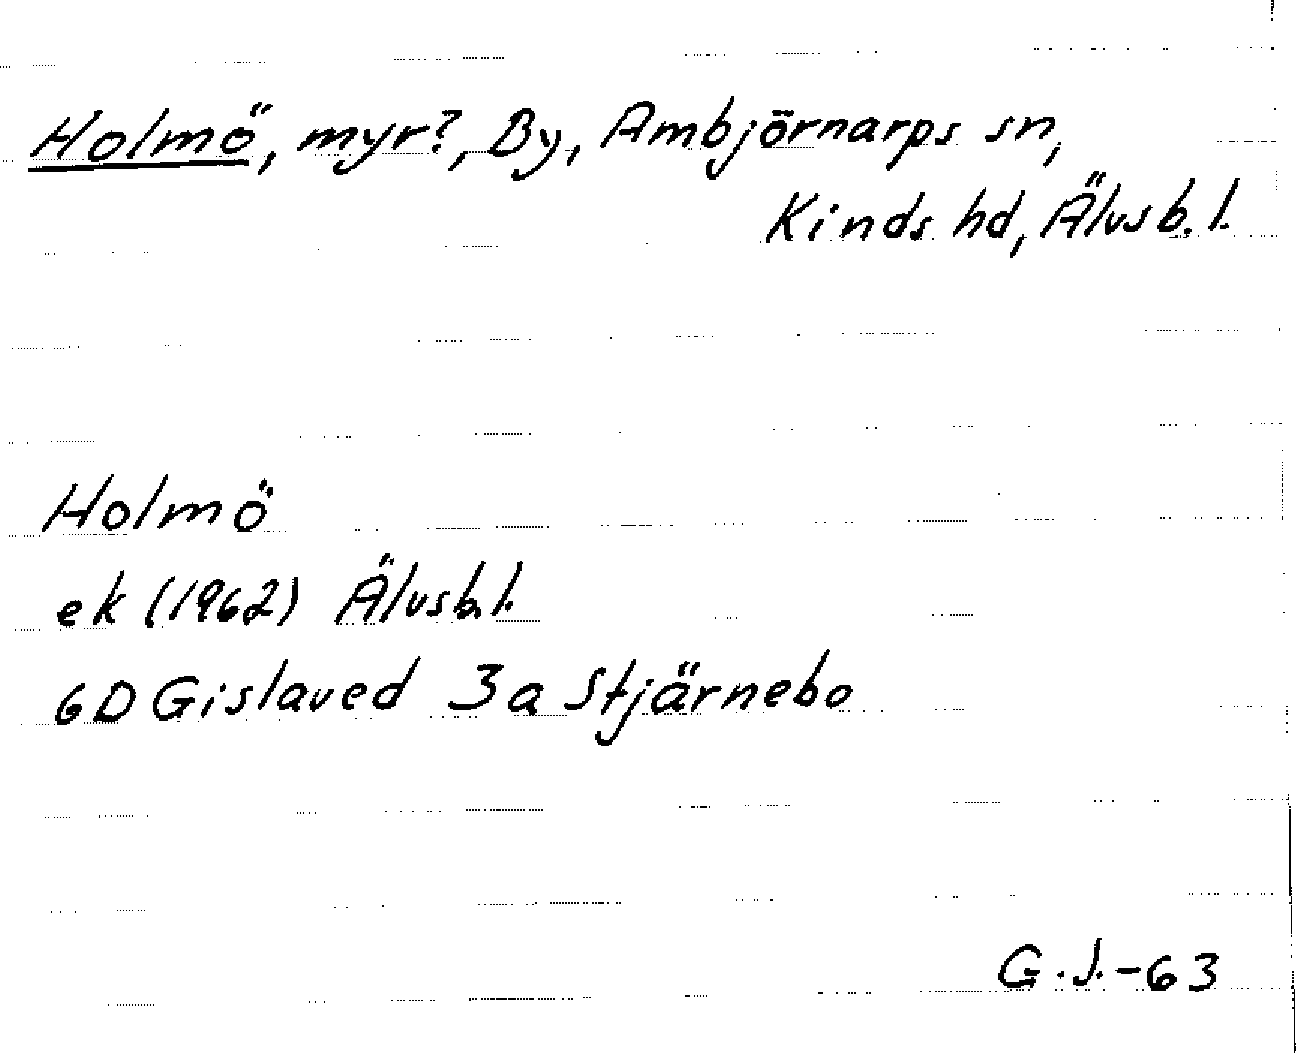 Holmö, myr?, By, Ambjörnarps sn,
Kinds hd, Älvsb. l.
Holmö
ek (1962) Älvsb. l.
6D Gislaved 3a Stjärnebo
G. J. -63